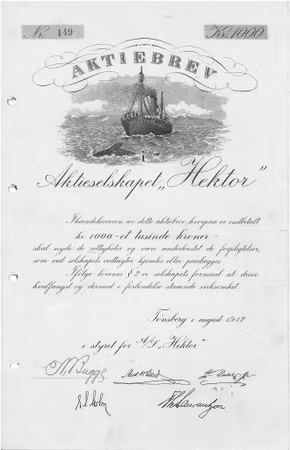 Nr. 149 Kr. 1000
AKTIEBREV
Aktieselskapet „Hektor”
Ihændehaveren av dette aktiebrev, hvorpaa er indbetalt
kr. 1000 - et tusinde kroner -
skal nyde de rettigheter og være underkastet de forpligtelser,
som ved selskapets vedtægter hjemles eller paalægges.
Ifølge lovenes § 2 er selskapets formaal at drive
hvalfangst og dermed i forbindelse staaende virksomhet.
Tønsberg i august 1912
i styret for A/S „Hektor”
N. Bugge